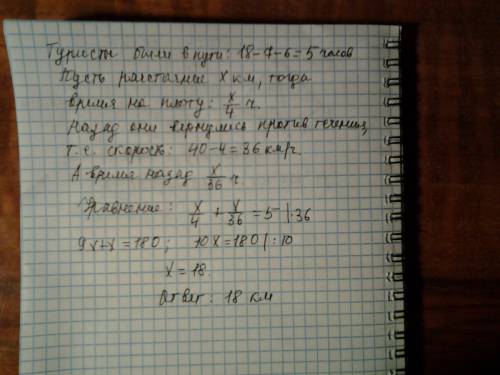 Туристы были в пути: 18-7-6=5 часов
Пусть расстояние x км, тогда
время на плоту: x/4 ч.
Назад они вернулись против течения,
т.е. скорость: 40-4=36 км/ч.
А время назад x/36 ч.
Уравнение: x/4 + x/36 = 5 |·36
9x+x=180; 10x=180|:10
x=18.
Ответ: 18 км